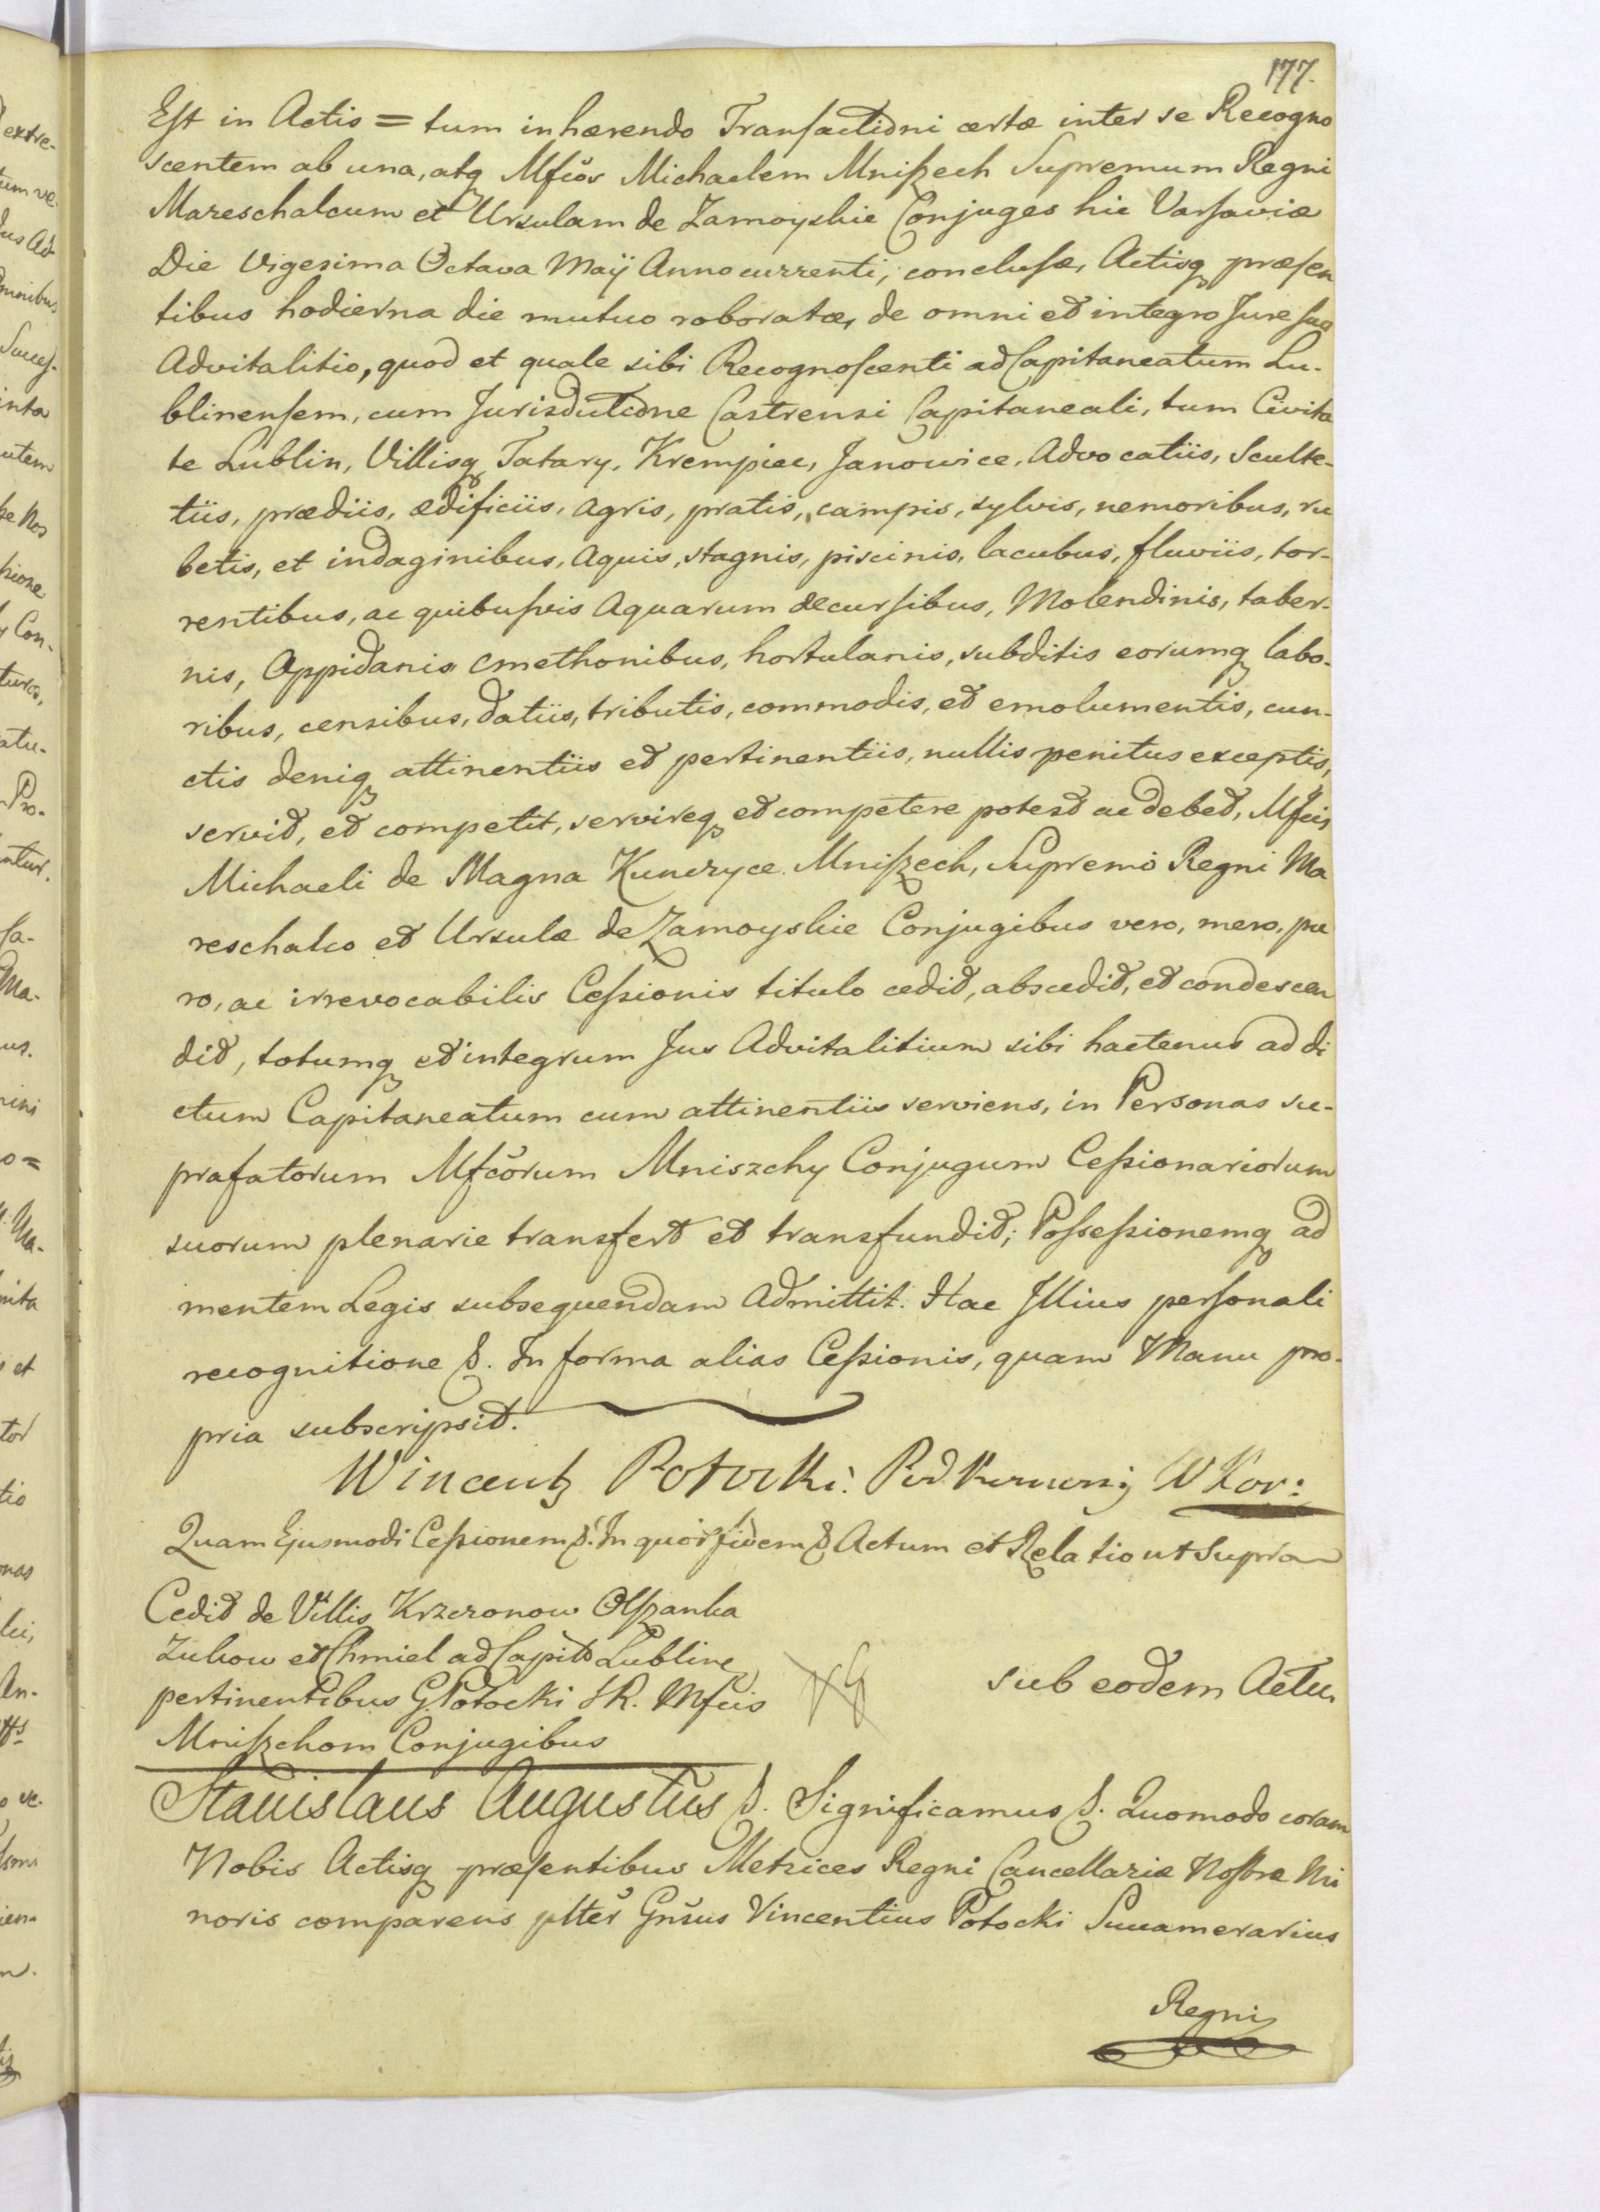 177.
Est in Actis = tum inhærendo Transactioni certæ inter se Recogno
scentem ab una, atq Mfcos Michaelem Mniszech Supremum Regni
Mareschalcum et Ursulam de Zamoyskie Conjuges hic Varsaviæ
Die Vigesima Octava Maÿ Anno currenti, conclusæ, Actisq præsen
tibus hodierna die mutuo roboratæ, de omni et integro Jure suo
Advitalitio, quod et quale sibi Recognoscenti ad Capitaneatum Lu-
blinensem, cum Jurisdictione Castrensi Capitaneali, tum Civita
te Lublin, Villisq Tatary, Krempiec, Janowice, Advocatiis, Sculte-
tiis, prædiis, ædificiis, agris, pratis, campis, sylvis, nemoribus, ru
betis, et indaginibus, aquis, stagnis, piscinis, lacubus, fluviis, tor-
rentibus, ac quibusvis aquarum decursibus, Molendinis, taber-
nis, Oppidanis Cmethonibus, hortulanis, subditis eorumq labo-
ribus, censibus, datiis, tributis, commodis, et emolumentis, cun-
ctis deniq attinentiis et pertinentiis, nullis penitus exceptis,
servit, et competit, servireq et competere potest ac debet, Mfcis
Michaeli de Magna Kunczyce Mniszech, Supremo Regni Ma
reschalco et Ursulæ de Zamoyskie Conjugibus vero, mero, pu
ro, ac irrevocabilis Cessionis titulo cedit, abscedit, et condescen
dit, totumq et integrum Jus Advitalitium sibi hactenus ad di
ctum Capitaneatum cum attinentiis serviens, in Personas su-
prafatorum Mfcorum Mniszchy Conjugum Cessionariorum
suorum plenarie transfert et transfundit; Possessionemq ad
mentem Legis subsequendam admittit. Hac Illius personali
recognitione &. In forma alias Cessionis, quam Manu pro-
pria subscripsit.
Wincenty Potocki. Podkomorzy W Kor:
Quam Ejusmodi Cessionem &. In quor fidem & Actum et Relatio ut Supra
Cedit de Villis Krzczonow Olszanka
Zukow et Chmiel ad Capit Lubline
pertinentibus G. Potocki SR. Mfcis
Mniszchom Conjugibus
sub eodem Actu.
Stanislaus Augustus &. Significamus &. Quomodo coram
Nobis Actisq præsentibus Metrices Regni Cancellariæ Nostræ Mi
noris comparens plter Gnsus Vincentius Potocki Succamerarius
Regni